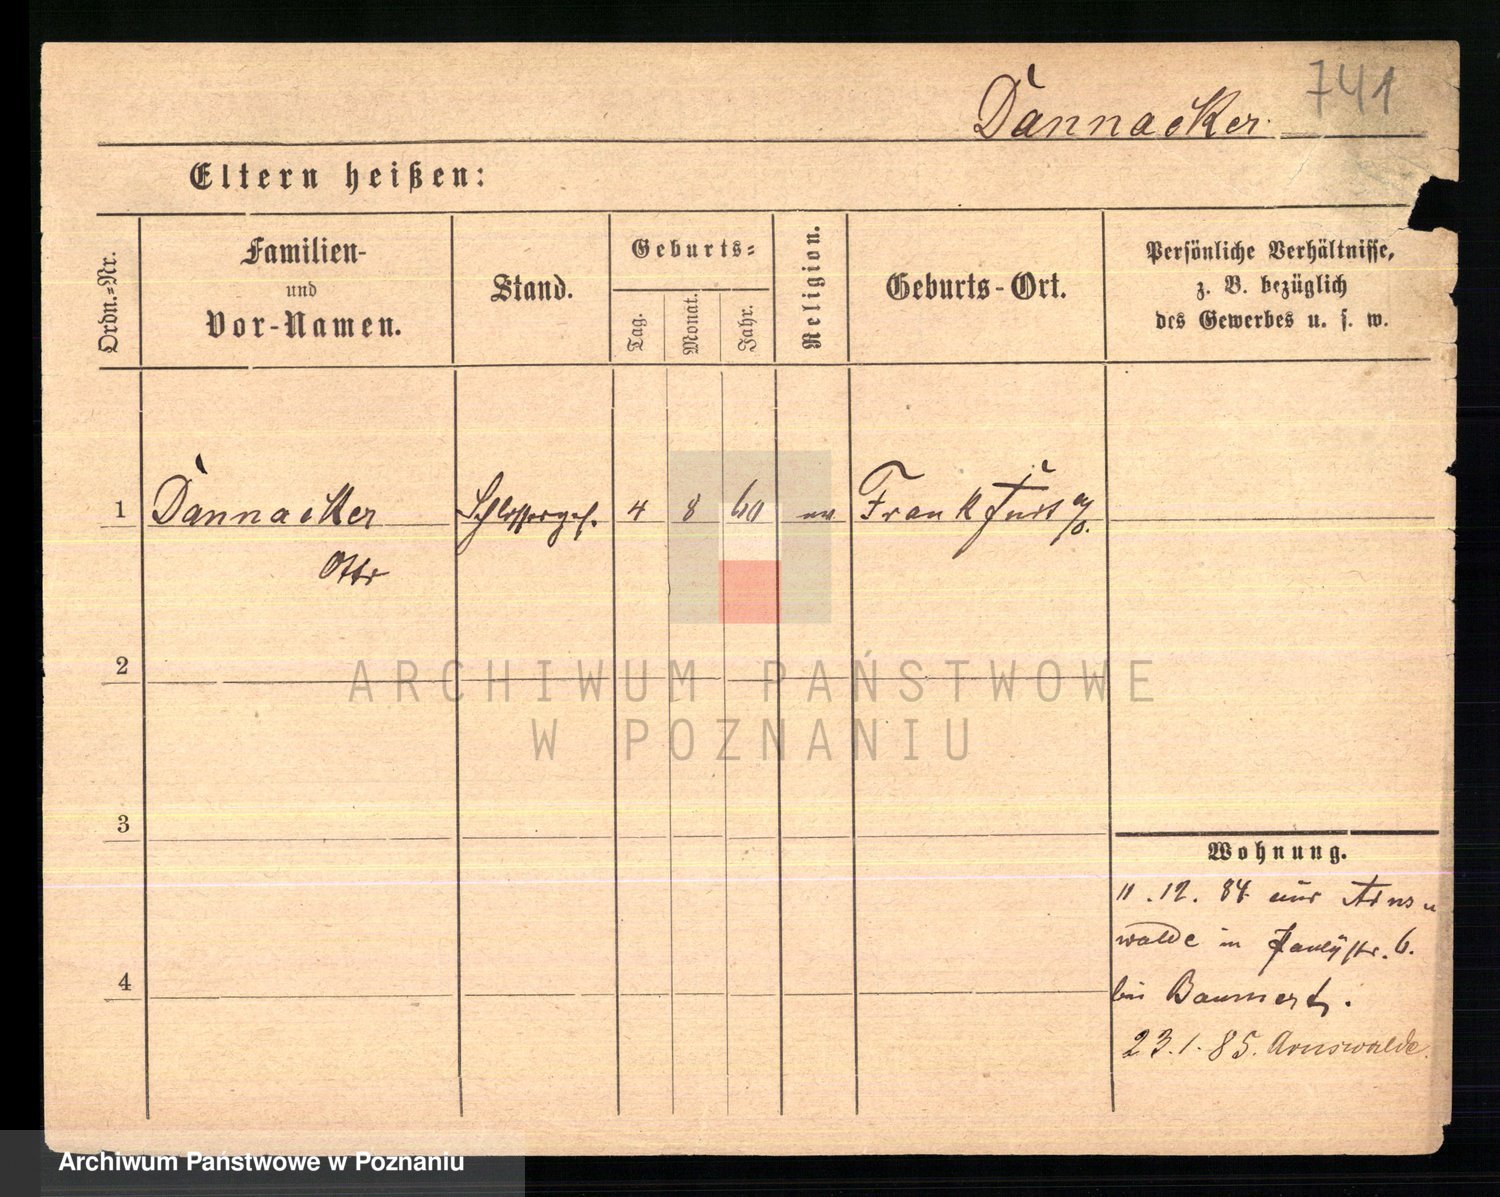 741
Dannacker.
Eltern heißen:
Ordn.-Nr.
Familien-
und
Vor-Namen.
Stand.
Geburts-
Tag.
Monat.
Jahr.
Religion.
Geburts-Ort.
Persönliche Verhältnisse,
z. B. bezüglich
des Gewerbes u. s. w.
1 Dannacker Schlosserges. 4 8 60 Frankfurt a/O.
Otto
2
3
4
Wohnung.
11.12.84 aus Arns-
walde in Paulystr. 6.
bei Baumert.
23.1.85. Arnswalde.
ARCHIWUM PAŃSTWOWE
W POZNANIU
Archiwum Państwowe w Poznaniu